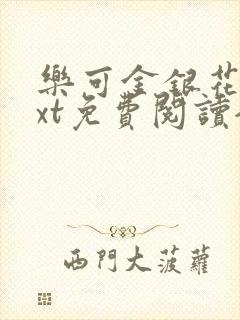 樂可金銀花
xt免費閱讀
西門大菠蘿